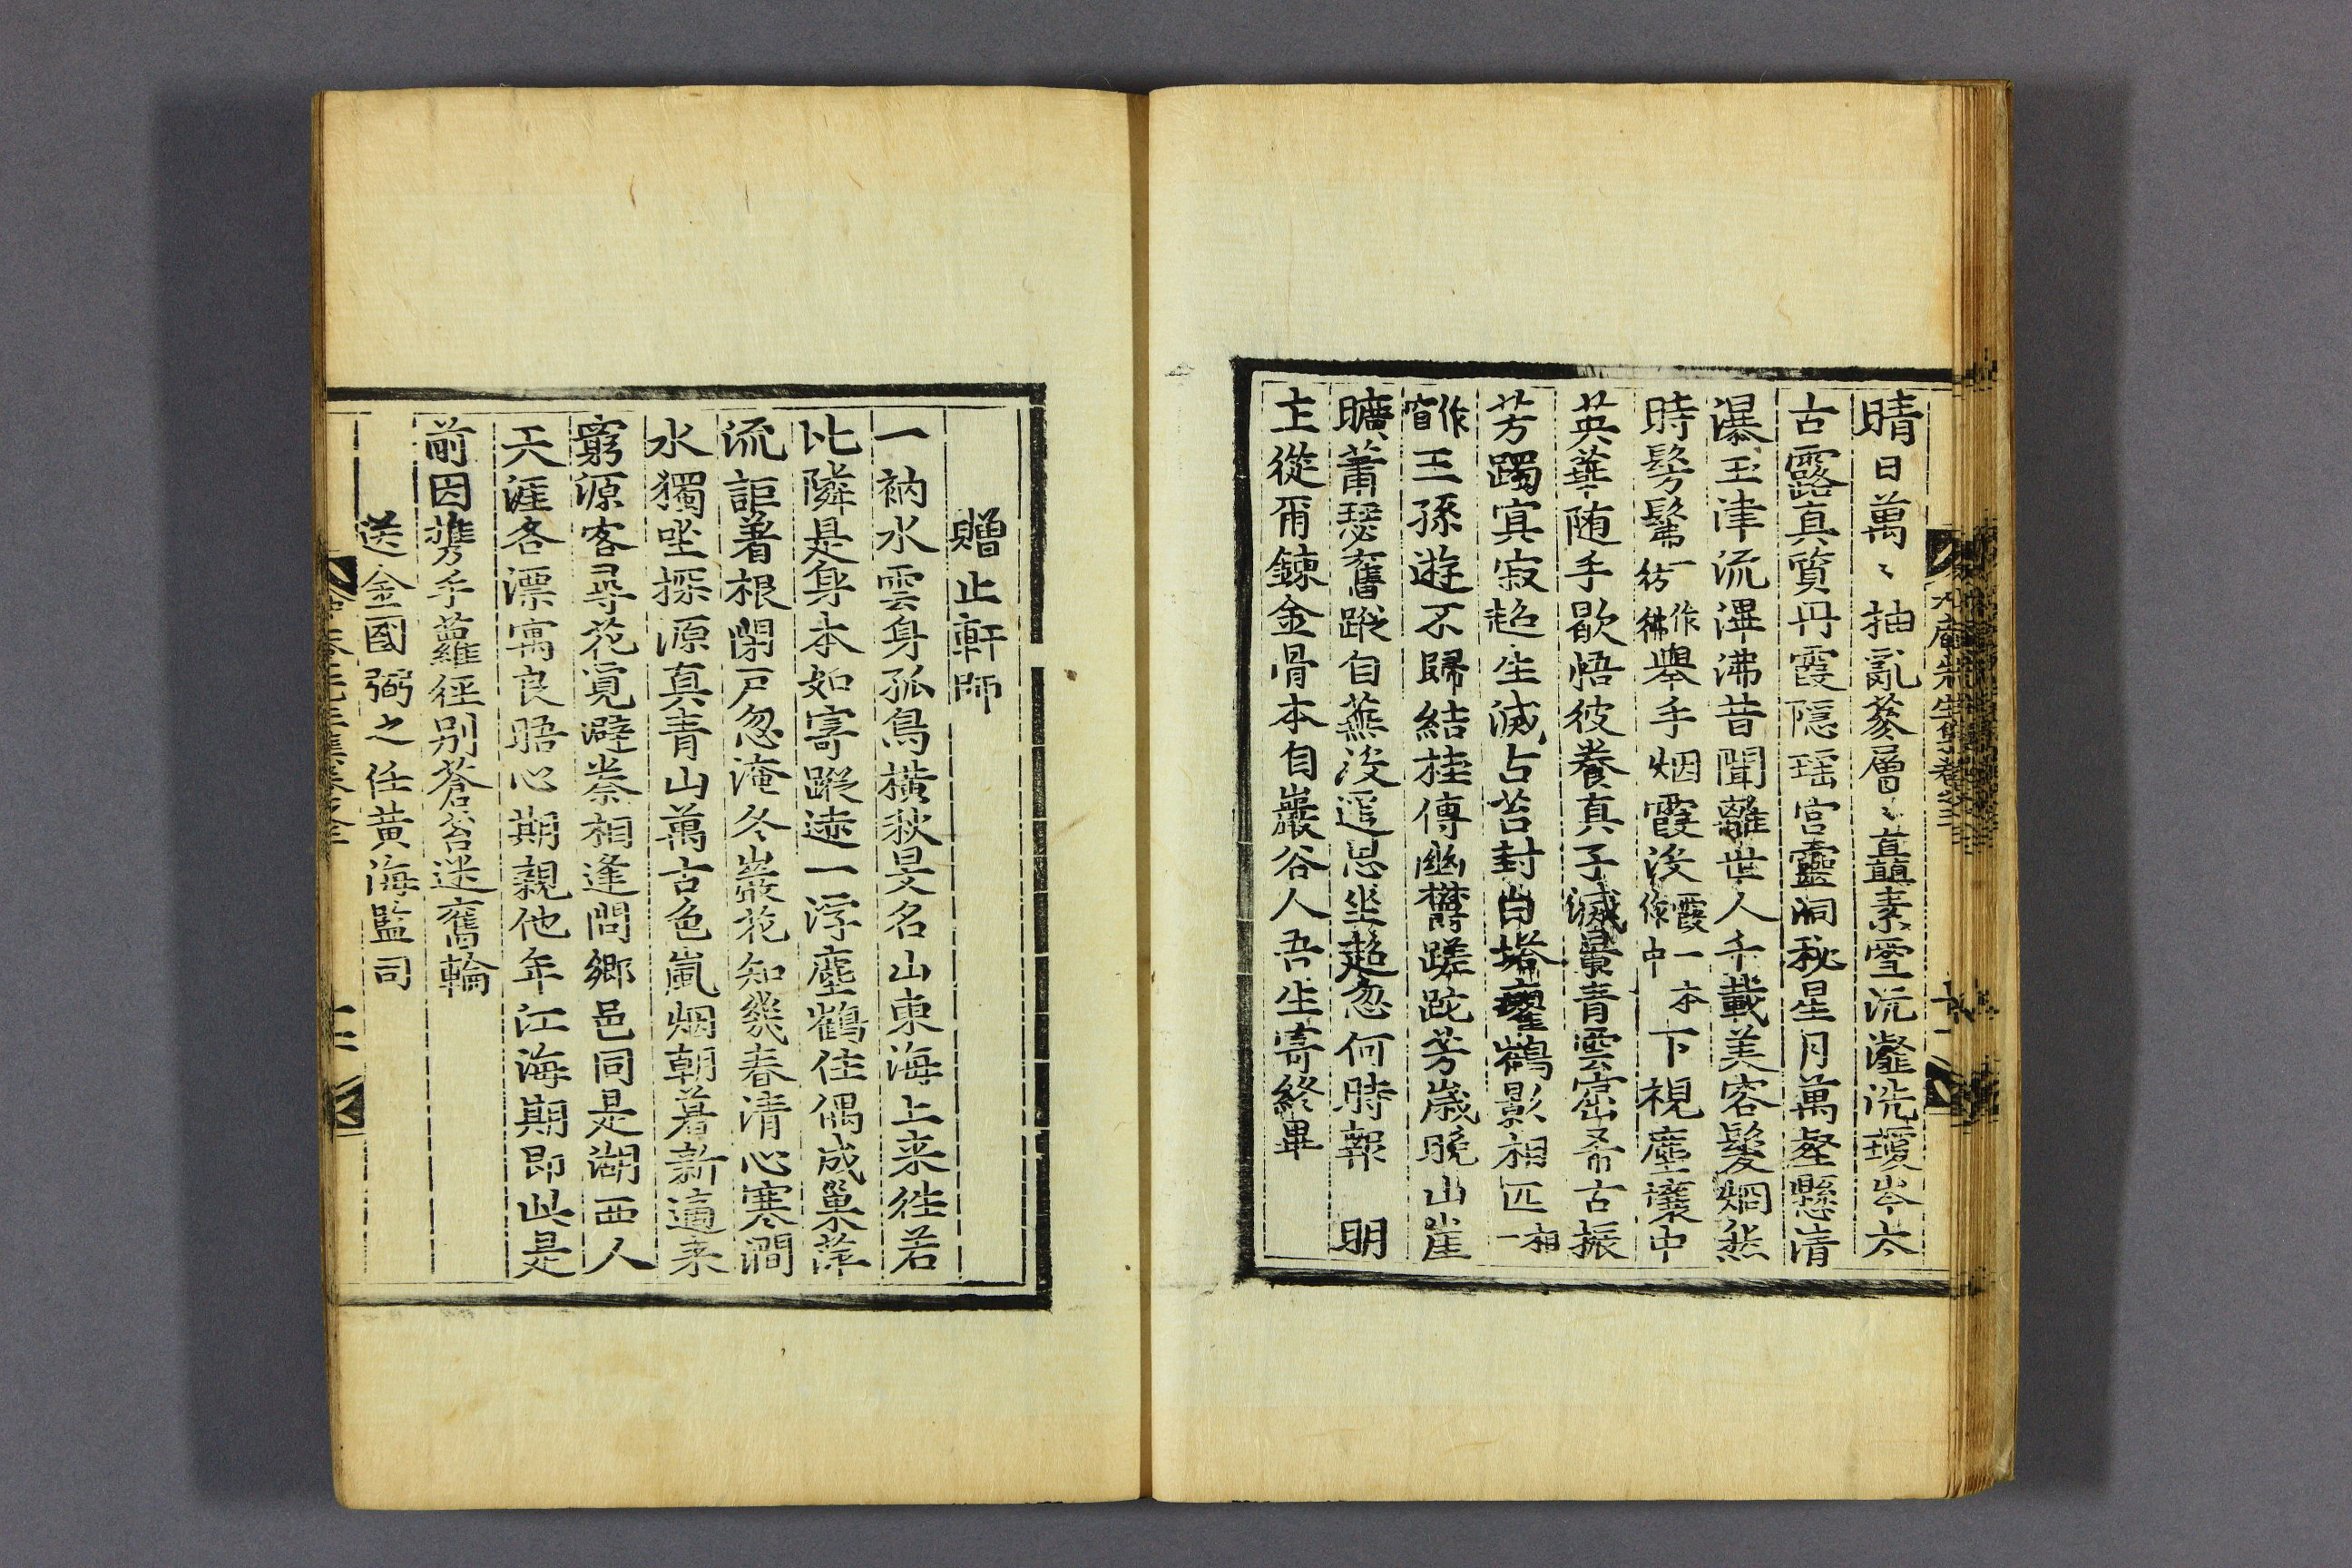 晴日萬〻抽亂篸層〻矗素雪沆瀣洗瓊岑太
古露真質丹霞隱瑤宮靈洞秘星月萬壑懸清
瀑玉津流渾沸昔聞離世人千載美容髮烟然
時髣髴一作彷彿擧手烟霞沒霞一本作中下視塵壤中
英華随手歇悟彼養真子滅景青雲窟希古振
芳躅寘寂超生滅占苔封白塔癯鶴影相匹相一
作皆王孫遊不歸結桂傳幽欝蹉跎芳歳晩山崖
曠蕭瑟舊蹤自蕪沒遥思坐超忽何時報 明
主從甭鍊金骨本自巖谷人吾生寄終畢
贈止軒師
一衲水雲身孤鳥橫秋旻名山東海上来徃若
比隣是身本如寄蹤迹一浮塵鶴住偶成巢萍
流詎着根閉戸忽淹冬巖花知幾春清心寒澗
水獨坐探源真青山萬古色嵐烟朝暮新適来
窮源客尋花覓避秦相逢問鄉邑同是湖西人
天涯各漂寓良晤心期親他年江海期即此是
前因携手蘿徑别蒼苔迷舊輪
送金國弼之任黄海監司